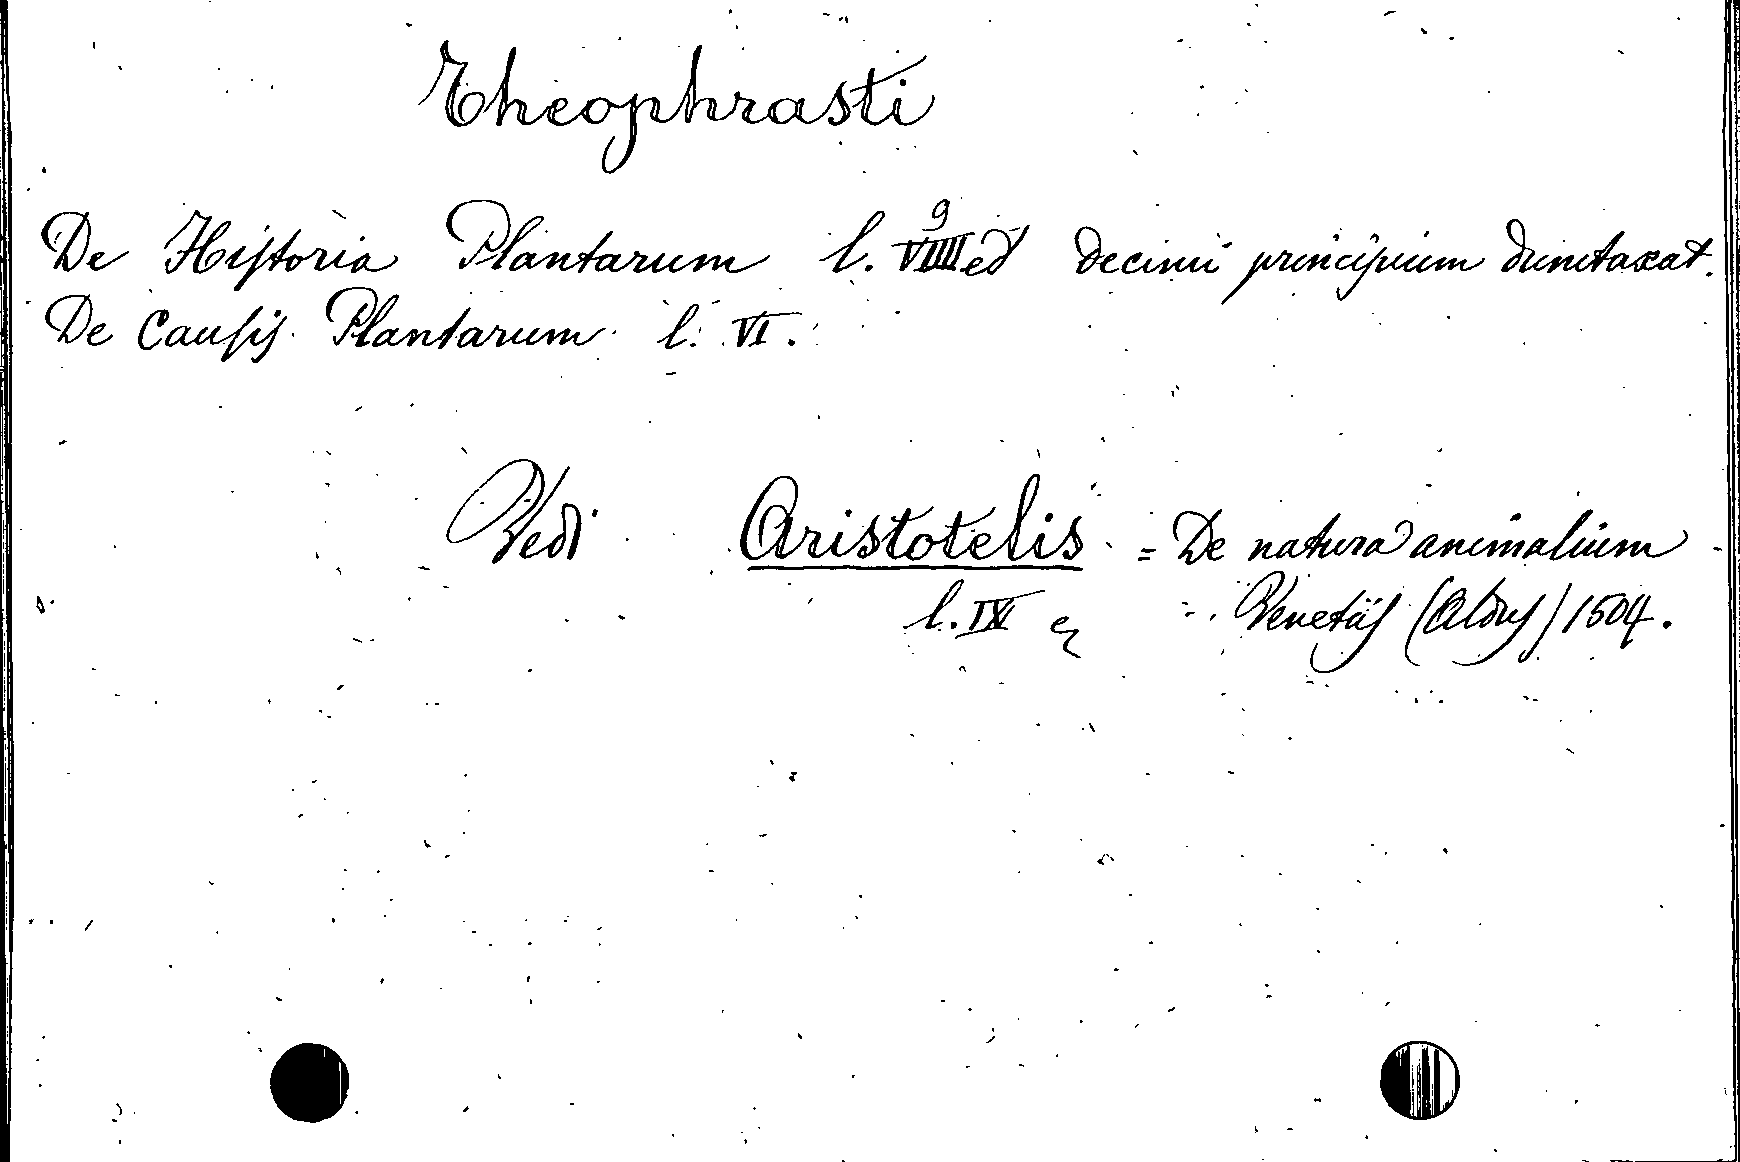 Theophrasti
9
De Historia Plantarum l. VIIII ed decimi principium dumtaxat.
De Causis Plantarum l. VI.
Vedi Aristotelis = De natura animalium
l. IX e Venetiis (Aldus) 1504.